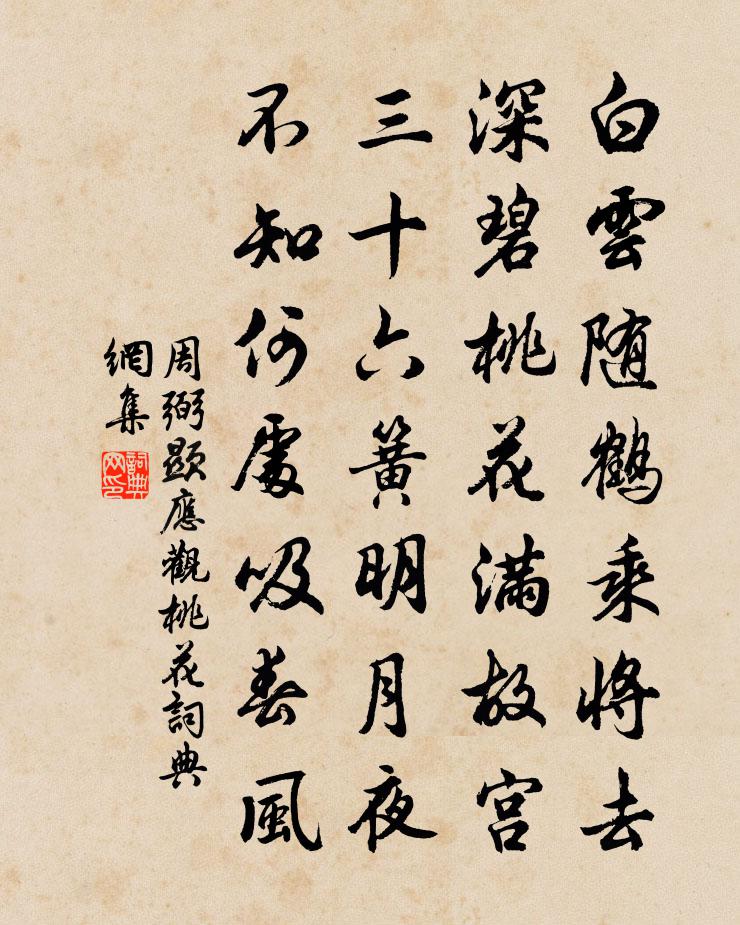 白雲随鶴乘將去
深碧桃花滿故宮
三十六簧明月夜
不知何處吸春風
周弼顯應觀桃花詞典
網集
詞典
网印